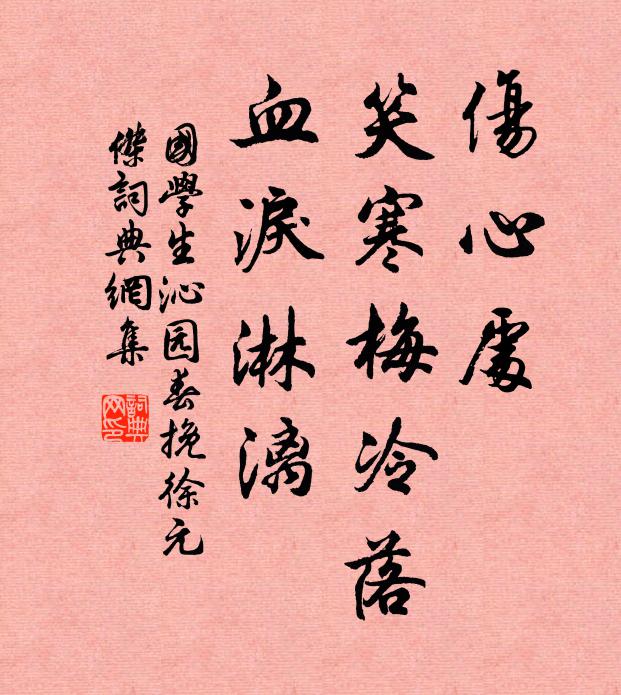 傷心處
笑寒梅冷落
血淚淋漓
國學生沁园春挽徐元
傑詞典網集
詞典网印